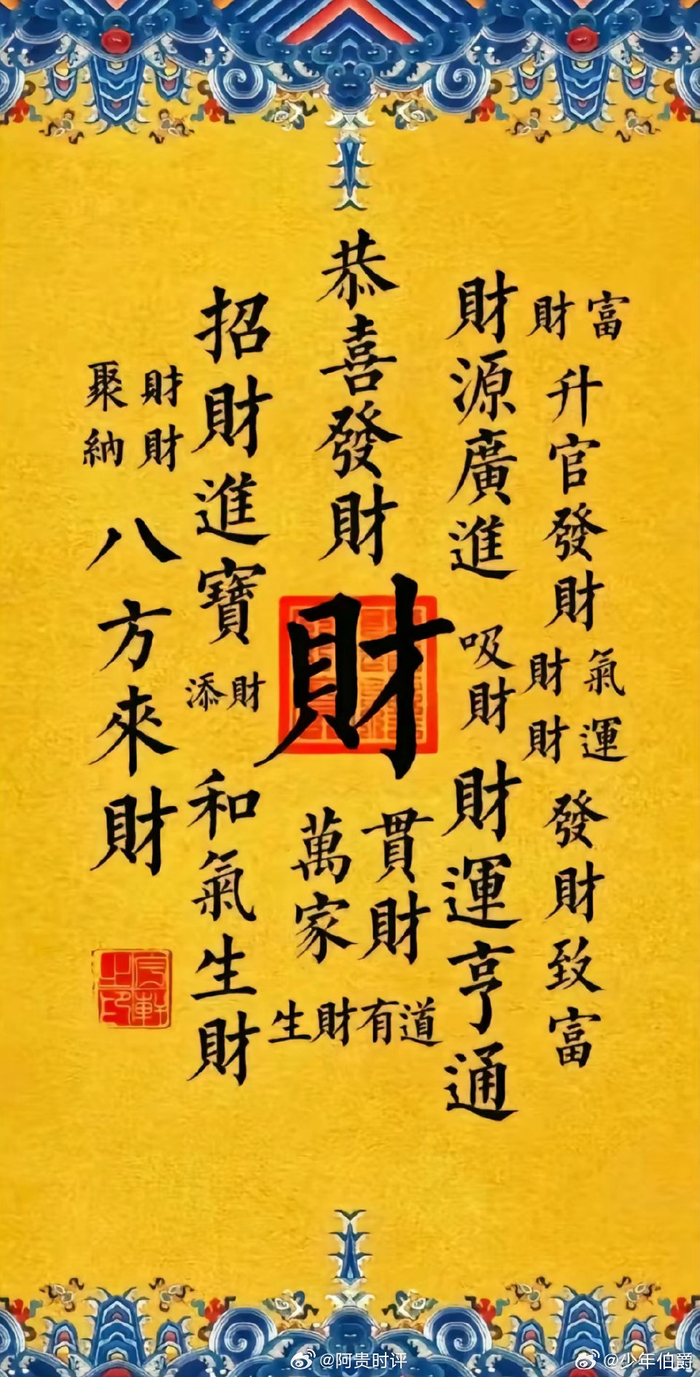 財富
升官發財
財氣
財運
發財致富
財源廣進
吸財
財運亨通
恭喜發財
財
貫財
萬家
生財有道
招財進寶
添財
和氣生財
聚財
納財
八方來財
@阿贵时评
@少年伯爵